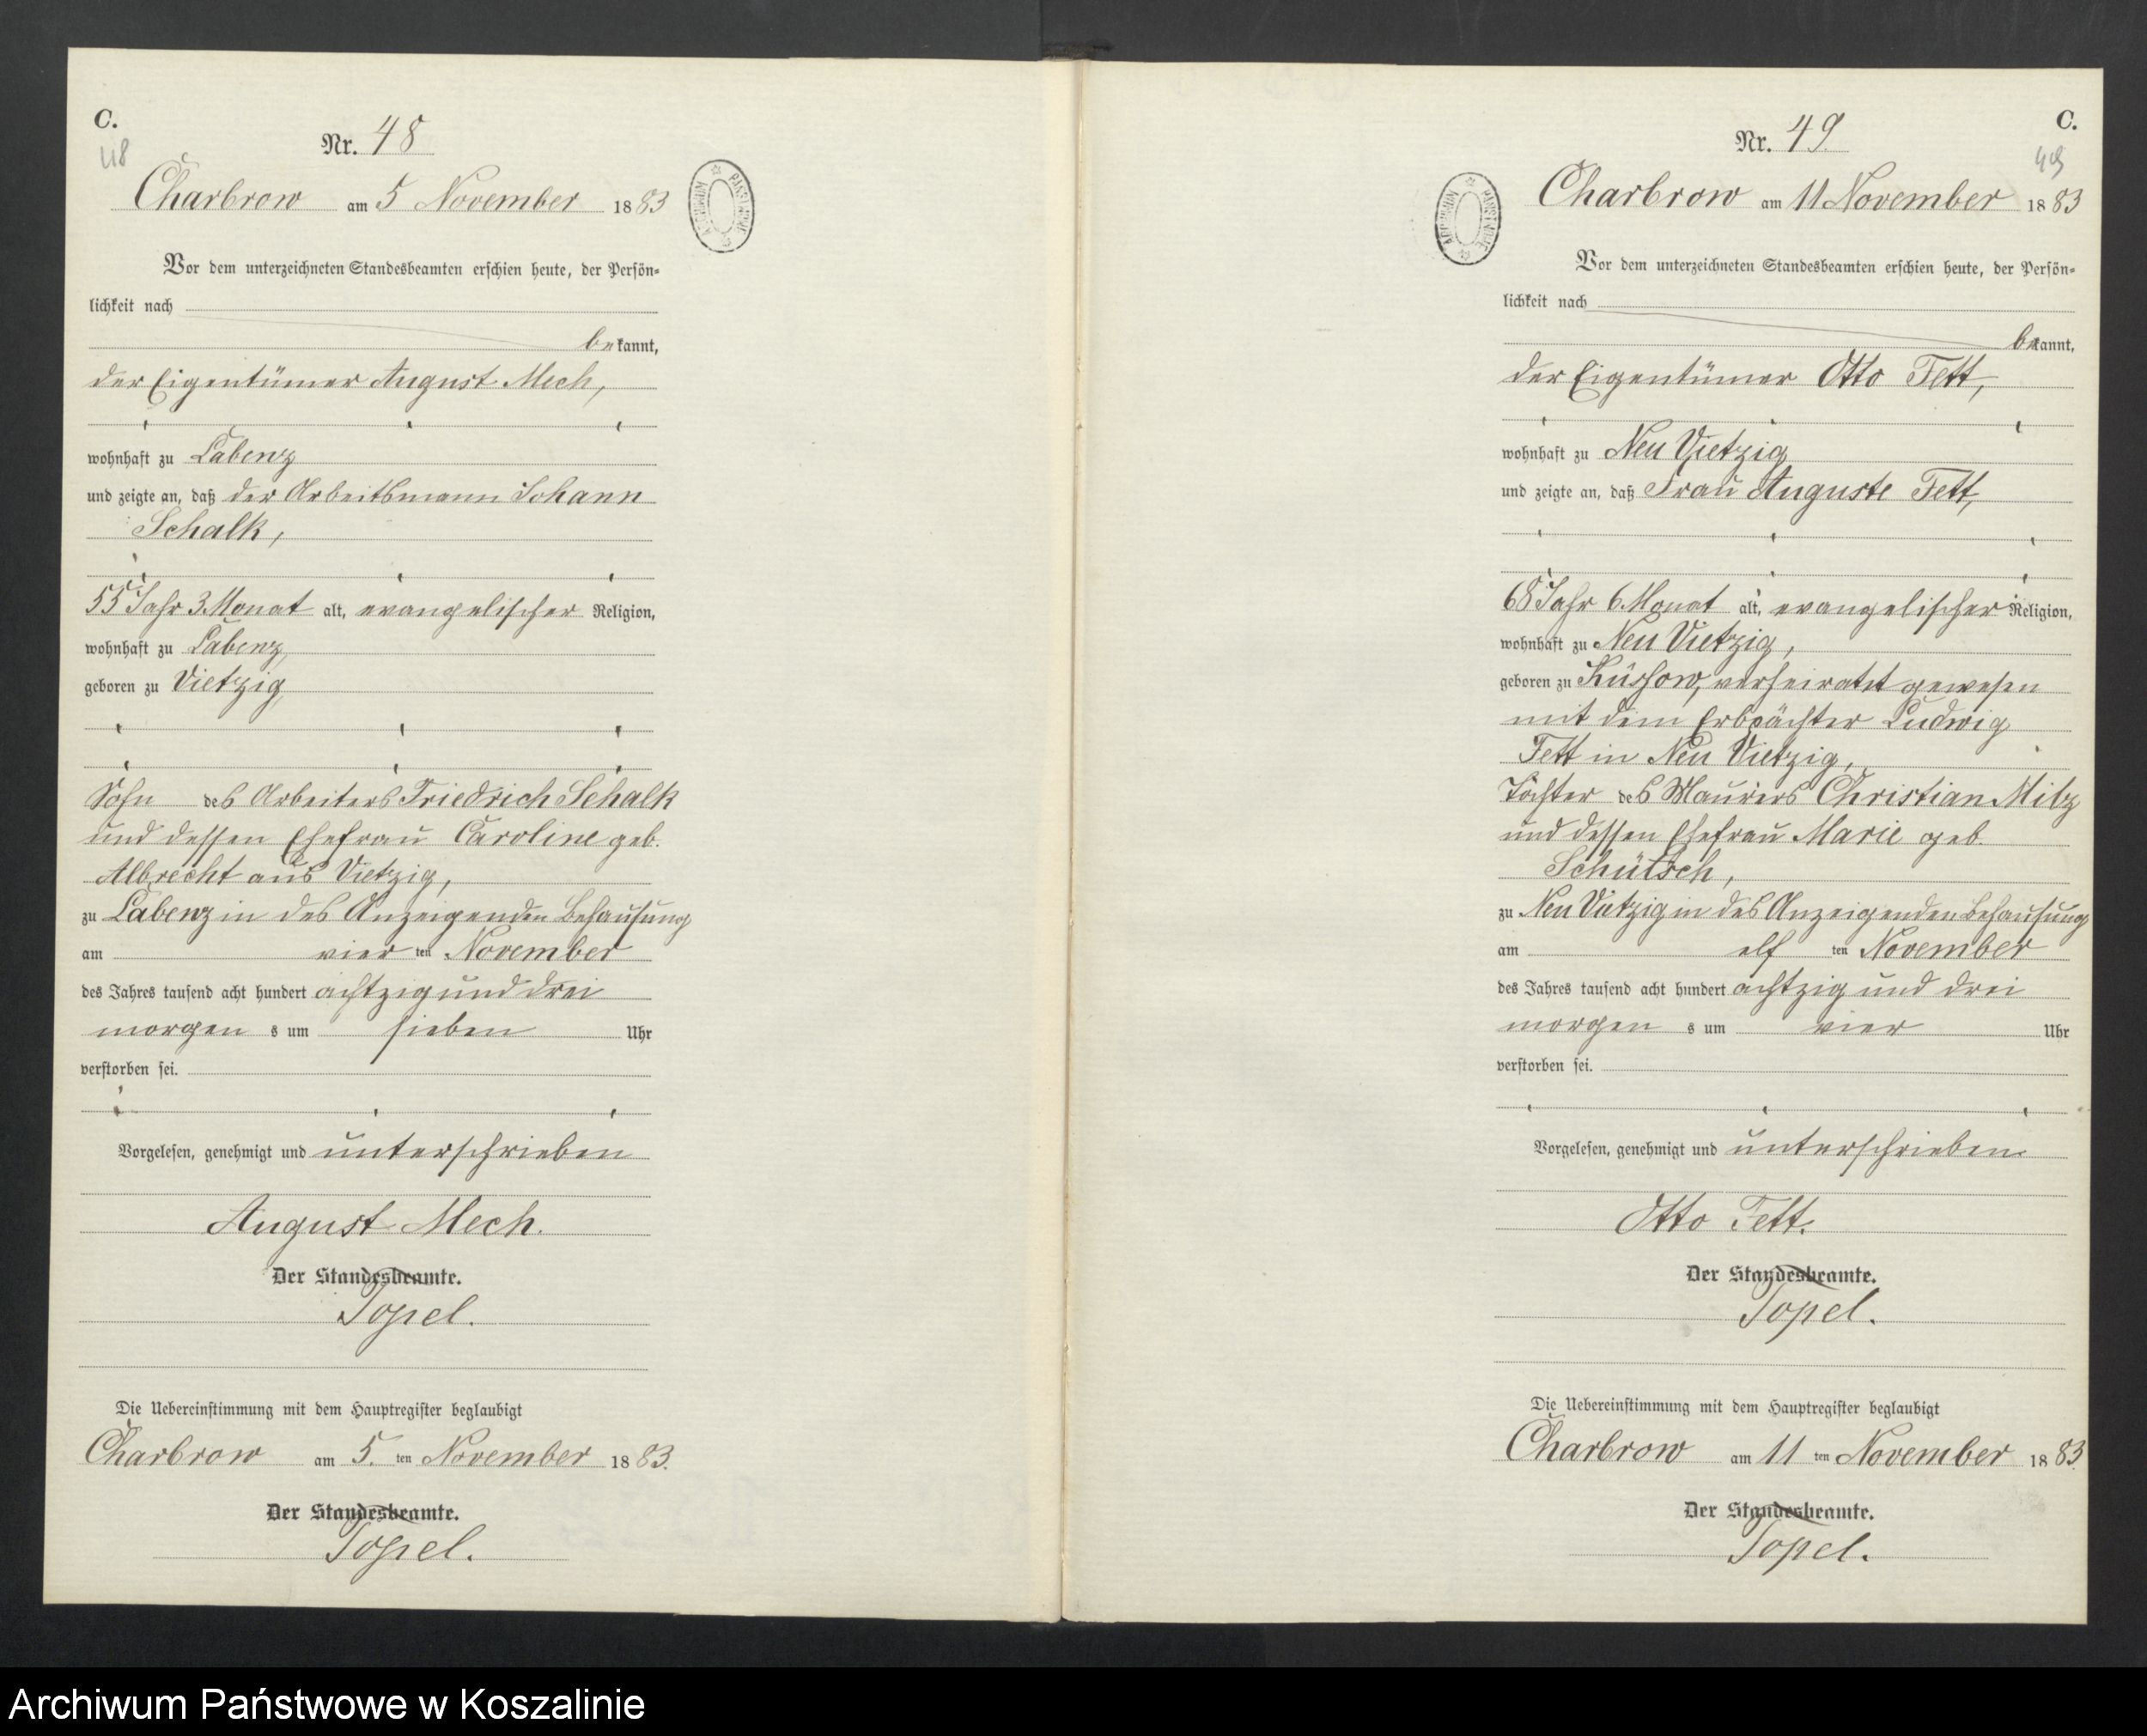 C.
48
Nr. 48
Charbrow am 5 November 1883
ARCHIWUM PAŃSTWOWE
Vor dem unterzeichneten Standesbeamten erschien heute, der Persön=
lichkeit nach
bekannt,
der Eigentümer August Mech,
wohnhaft zu Labenz
und zeigte an, daß der Arbeitsmann Johann
Schalk,
55 Jahr 3 Monat alt, evangelischer Religion,
wohnhaft zu Labenz,
geboren zu Vietzig,
Sohn des Arbeiters Friedrich Schalk
und dessen Ehefrau Caroline geb.
Albrecht aus Vietzig,
zu Labenz in des Anzeigenden Behausung
am vier ten November
des Jahres tausend acht hundert achtzig und drei
morgen s um sieben Uhr
verstorben sei.
Vorgelesen, genehmigt und unterschrieben
August Mech.
Der Standesbeamte.
Topel.
Die Uebereinstimmung mit dem Hauptregister beglaubigt
Charbrow am 5. ten November 1883.
Der Standesbeamte.
Topel.
C.
49
Nr. 49
Charbrow am 11 November 1883
ARCHIWUM PAŃSTWOWE
Vor dem unterzeichneten Standesbeamten erschien heute, der Persön=
lichkeit nach
bekannt,
der Eigentümer Otto Fett,
wohnhaft zu Neu Vietzig
und zeigte an, daß Frau Auguste Fett,
68 Jahr 6 Monat alt, evangelischer Religion,
wohnhaft zu Neu Vietzig,
geboren zu Küssow, verheiratet gewesen
mit dem Erbpächter Ludwig
Fett in Neu Vietzig,
Tochter des Maurers Christian Milz
und dessen Ehefrau Marie geb.
Schütsch,
zu Neu Vietzig in des Anzeigenden Behausung
am elf ten November
des Jahres tausend acht hundert achtzig und drei
morgen s um vier Uhr
verstorben sei.
Vorgelesen, genehmigt und unterschrieben
Otto Fett.
Der Standesbeamte.
Topel.
Die Uebereinstimmung mit dem Hauptregister beglaubigt
Charbrow am 11 ten November 1883.
Der Standesbeamte.
Topel.
Archiwum Państwowe w Koszalinie